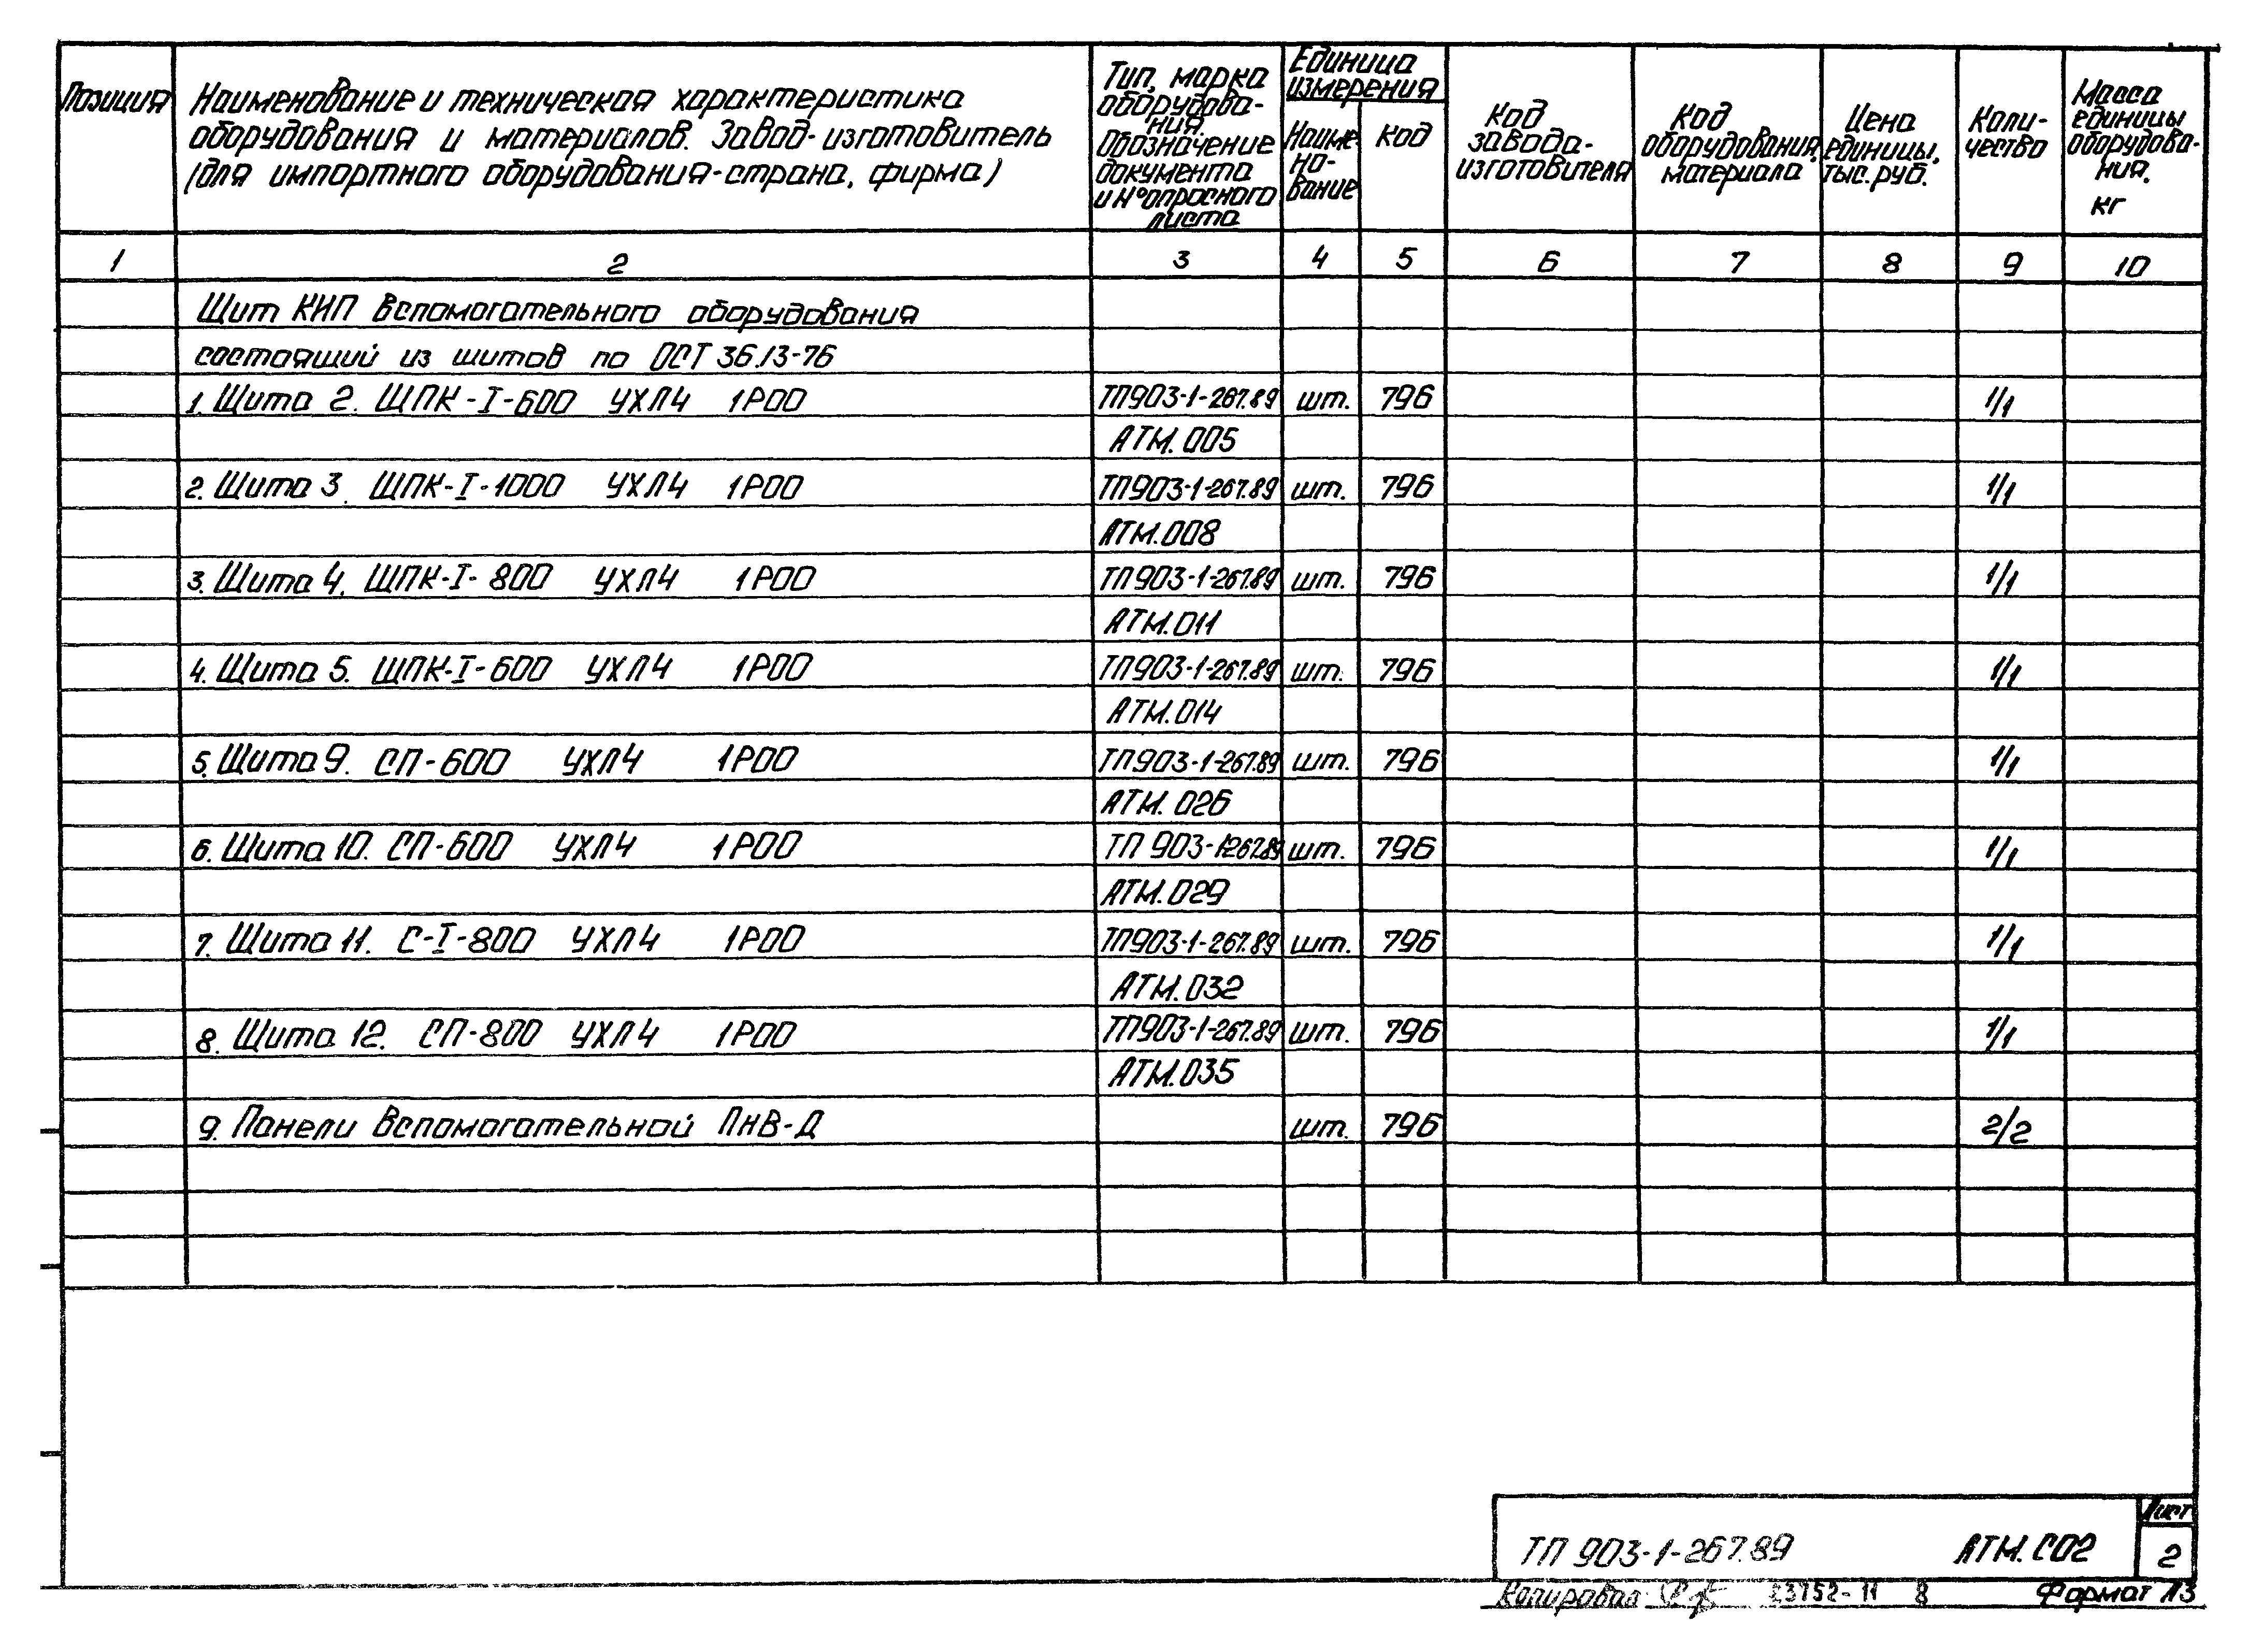 Позиция
Наименование и техническая характеристика
оборудования и материалов. Завод-изготовитель
(для импортного оборудования-страна, фирма)
Тип, марка
оборудова-
ния.
Обозначение
документа
и N° опросного
листа
Единица
измерения
Наиме-
но-
вание
Код
Код
завода-
изготовителя
Код
оборудования,
материала
Цена
единицы,
тыс. руб.
Коли-
чество
Масса
единицы
оборудова-
ния,
кг
1 2 3 4 5 6 7 8 9 10
Щит КИП вспомогательного оборудования
состоящий из щитов по ОСТ 36.13-76
1. Щита 2. ЩПК-I-600 УХЛ4 1Р00 ТП903-1-267.89 шт. 796 1/1
АТМ.005
2. Щита 3. ЩПК-I-1000 УХЛ4 1Р00 ТП903-1-267.89 шт. 796 1/1
АТМ.008
3. Щита 4. ЩПК-I-800 УХЛ4 1Р00 ТП903-1-267.89 шт. 796 1/1
АТМ.011
4. Щита 5. ЩПК-I-600 УХЛ4 1Р00 ТП903-1-267.89 шт. 796 1/1
АТМ.014
5. Щита 9. СП-600 УХЛ4 1Р00 ТП903-1-267.89 шт. 796 1/1
АТМ.026
6. Щита 10. СП-600 УХЛ4 1Р00 ТП 903-1267.89 шт. 796 1/1
АТМ.029
7. Щита 11. С-I-800 УХЛ4 1Р00 ТП903-1-267.89 шт. 796 1/1
АТМ.032
8. Щита 12. СП-800 УХЛ4 1Р00 ТП903-1-267.89 шт. 796 1/1
АТМ.035
9. Панели вспомогательной ПНВ-Д шт. 796 2/2
ТП 903-1-267.89 АТМ.СО2
Лист
2
Копировал 23752-11 8 Формат А3